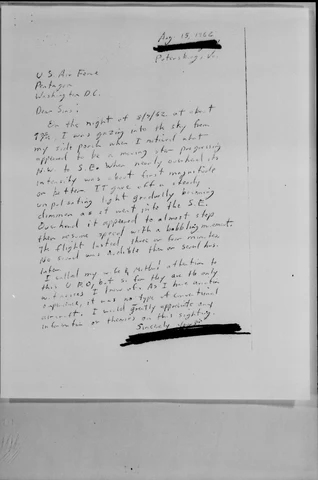 Aug 15, 1962
Petersburg, Va.
U.S. Air Force
Pentagon
Washington D.C.
Dear Sirs:
On the night of 8/9/62 at about
I was gazing into the sky from
my side porch when I noticed what
appeared to be a moving star progressing
N.W. to S.E. When nearly overhead its
intensity was about first magnitude
or better. It gave off a steady
unpulsating light gradually becoming
dimmer as it went into the S.E.
Overhead it appeared to almost stop
then resume speed with a bobbling movement.
The flight lasted three or four minutes
No sound was audible then or several hours
later.
I called my wife & attention to
this U.F.O, but so far they are the only
witnesses I know of. As I have aviation
experience, it was no type of conventional
aircraft. I would greatly appreciate any
information or theories on this sighting.
Sincerely